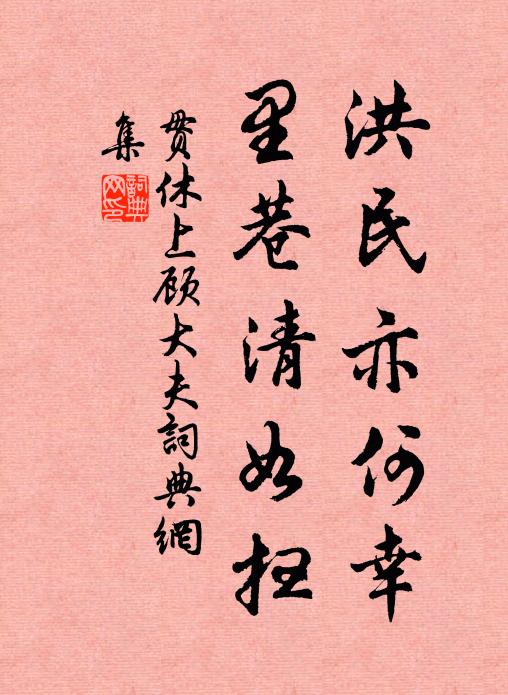 洪民亦何幸
里巷清如扫
贯休上顾大夫詞典網
集
詞典网印